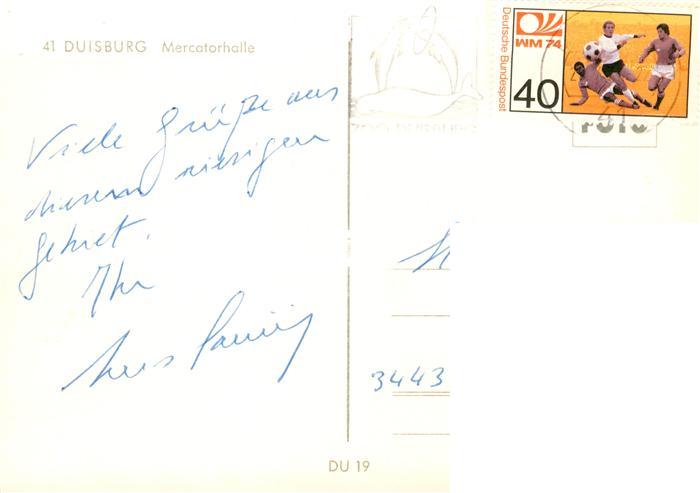 41 DUISBURG Mercatorhalle
Viele Grüße aus
diesem riesigen
Gebiet.
Ihr
DU 19
Deutsche Bundespost
WM 74
40
ZOO DUISBURG
3443